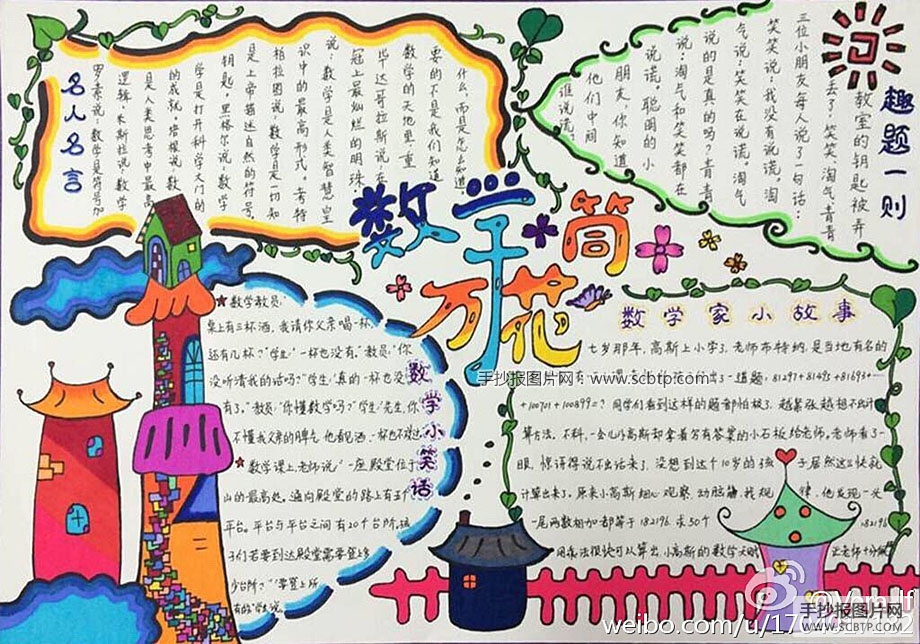 数学万花筒
名人名言
罗素说:数学是符号加
逻辑。米斯拉说:数学
是人类思考中最高
的成就。培根说:数
学是打开科学大门的
钥匙。黑格尔说:数学
是上帝描述自然的符号。
柏拉图说:数学是一切知
识中的最高形式。考特
说:数学是人类智慧皇
冠上最灿烂的明珠。
毕达哥拉斯说:在
数学的天地里,重
要的不是我们知道
什么,而是怎么知道
趣题一则
教室的钥匙被弄
去了,笑笑、淘气、青青
三位小朋友每人说了一句话:
笑笑说:我没有说谎。淘
气说:笑笑在说谎。淘气
说的是真的吗?青青
说:淘气和笑笑都在
说谎。聪明的小
朋友,你知道
他们中间
谁说谎?
数学小笑话
★数学教员:“
桌上有三杯酒,我请你父亲喝一杯,
还有几杯?”学生:“一杯也没有。”教员:“你
没听清我的话吗?”学生:“真的一杯也没
有了。”教员:“你懂数学吗?”学生:“先生,你
不懂我父亲的脾气,他看见酒,一杯也不
★数学课上,老师说:“一座殿堂位于
山的最高处。通向殿堂的路上有3个
平台。平台与平台之间有20个台阶,孩
子们若要到达殿堂需要登上多
少台阶?”“要登上所
有的”学生说。
数学家小故事
七岁那年,高斯上小学了,老师布特纳,是当地有名的
出了一道题:81297+81495+81693+
+100701+100899=?同学们看到这样的题都怕极了,越紧张越想不出计
算方法。不料,一会儿小高斯却拿着写有答案的小石板给老师。老师看了一
眼,惊讶得说不出话来了,没想到这个10岁的孩子居然这么快就
计算出来了。原来小高斯细心观察,动脑筋,找规律,他发现一头
一尾两数相加都等于182196,求50个182196
用乘法很快可以算出,小高斯的数学天
手抄报图片网:www.scbtp.com
手抄报图片网
SCBTP.COM
手抄报图片网
WWW.SCBTP.COM